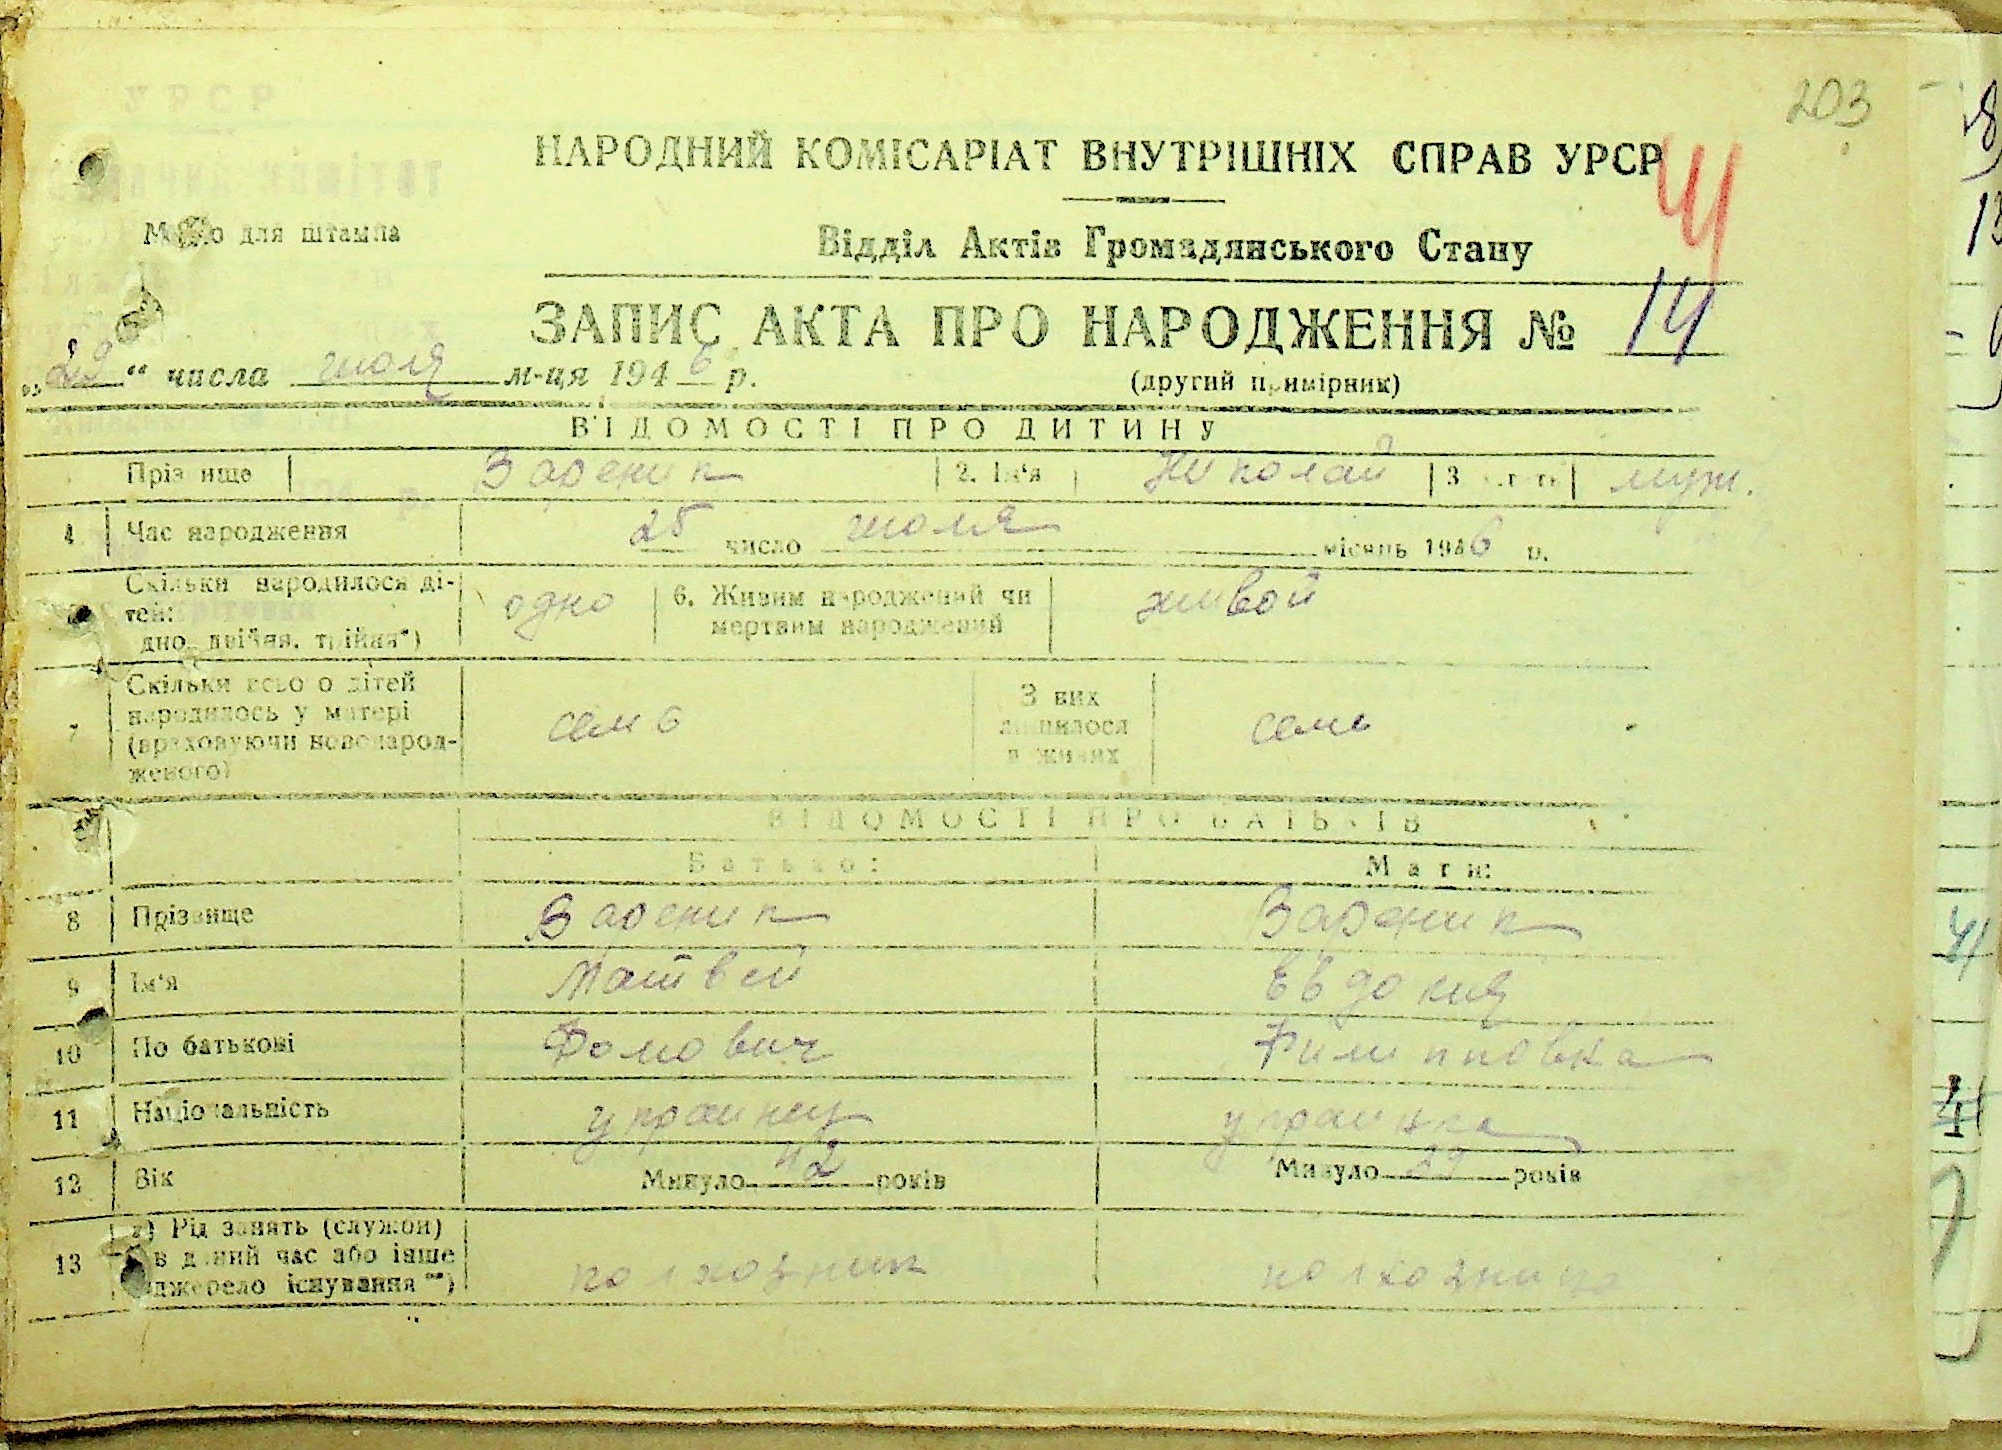 203
НАРОДНИЙ КОМІСАРІАТ ВНУТРІШНІХ СПРАВ УРСР
Місце для штампа
Відділ Актів Громадянського Стану
ЗАПИС АКТА ПРО НАРОДЖЕННЯ № 14
„29“ числа июля м-ця 1946 р.
(другий примірник)
ВІДОМОСТІ ПРО ДИТИНУ
Прізвище Вареник 2. Ім'я Николай 3 муж.
4 Час народження 25 число июля місяць 1946 р.
Скільки народилося ді-
тей:
дно, двійня, трійня*)
одно
6. Живим народжений чи
мертвим народжений
живой
7 Скільки всього дітей
народилось у матері
(враховуючи новонарод-
женого)
семь
З них
лишилося
в живих
семь
ВІДОМОСТІ ПРО БАТЬКІВ
Батько: Мати:
8 Прізвище Вареник Вареник
9 Ім'я Матвей Евдокия
10 По батькові Фомович Филипповна
11 Національність украинец украинка
12 Вік Минуло 42 років Минуло років
13 а) Рід занять (служби)
в даний час або інше
джерело існування**)
колхозник колхозница